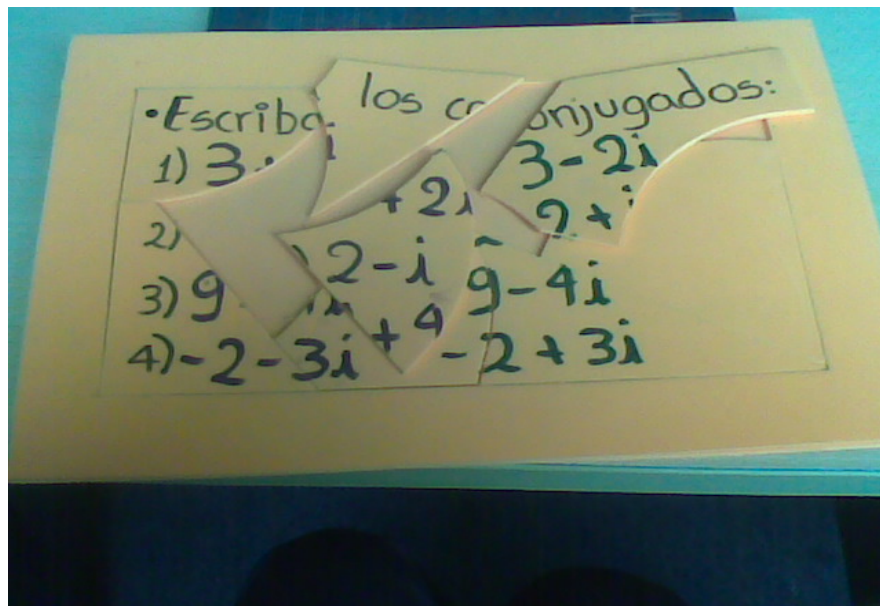 •Escriba los conjugados:
1) 3 + 2i 3 - 2i
2) 2 - i 2 + i
3) 9 + 4i 9 - 4i
4) -2 - 3i -2 + 3i